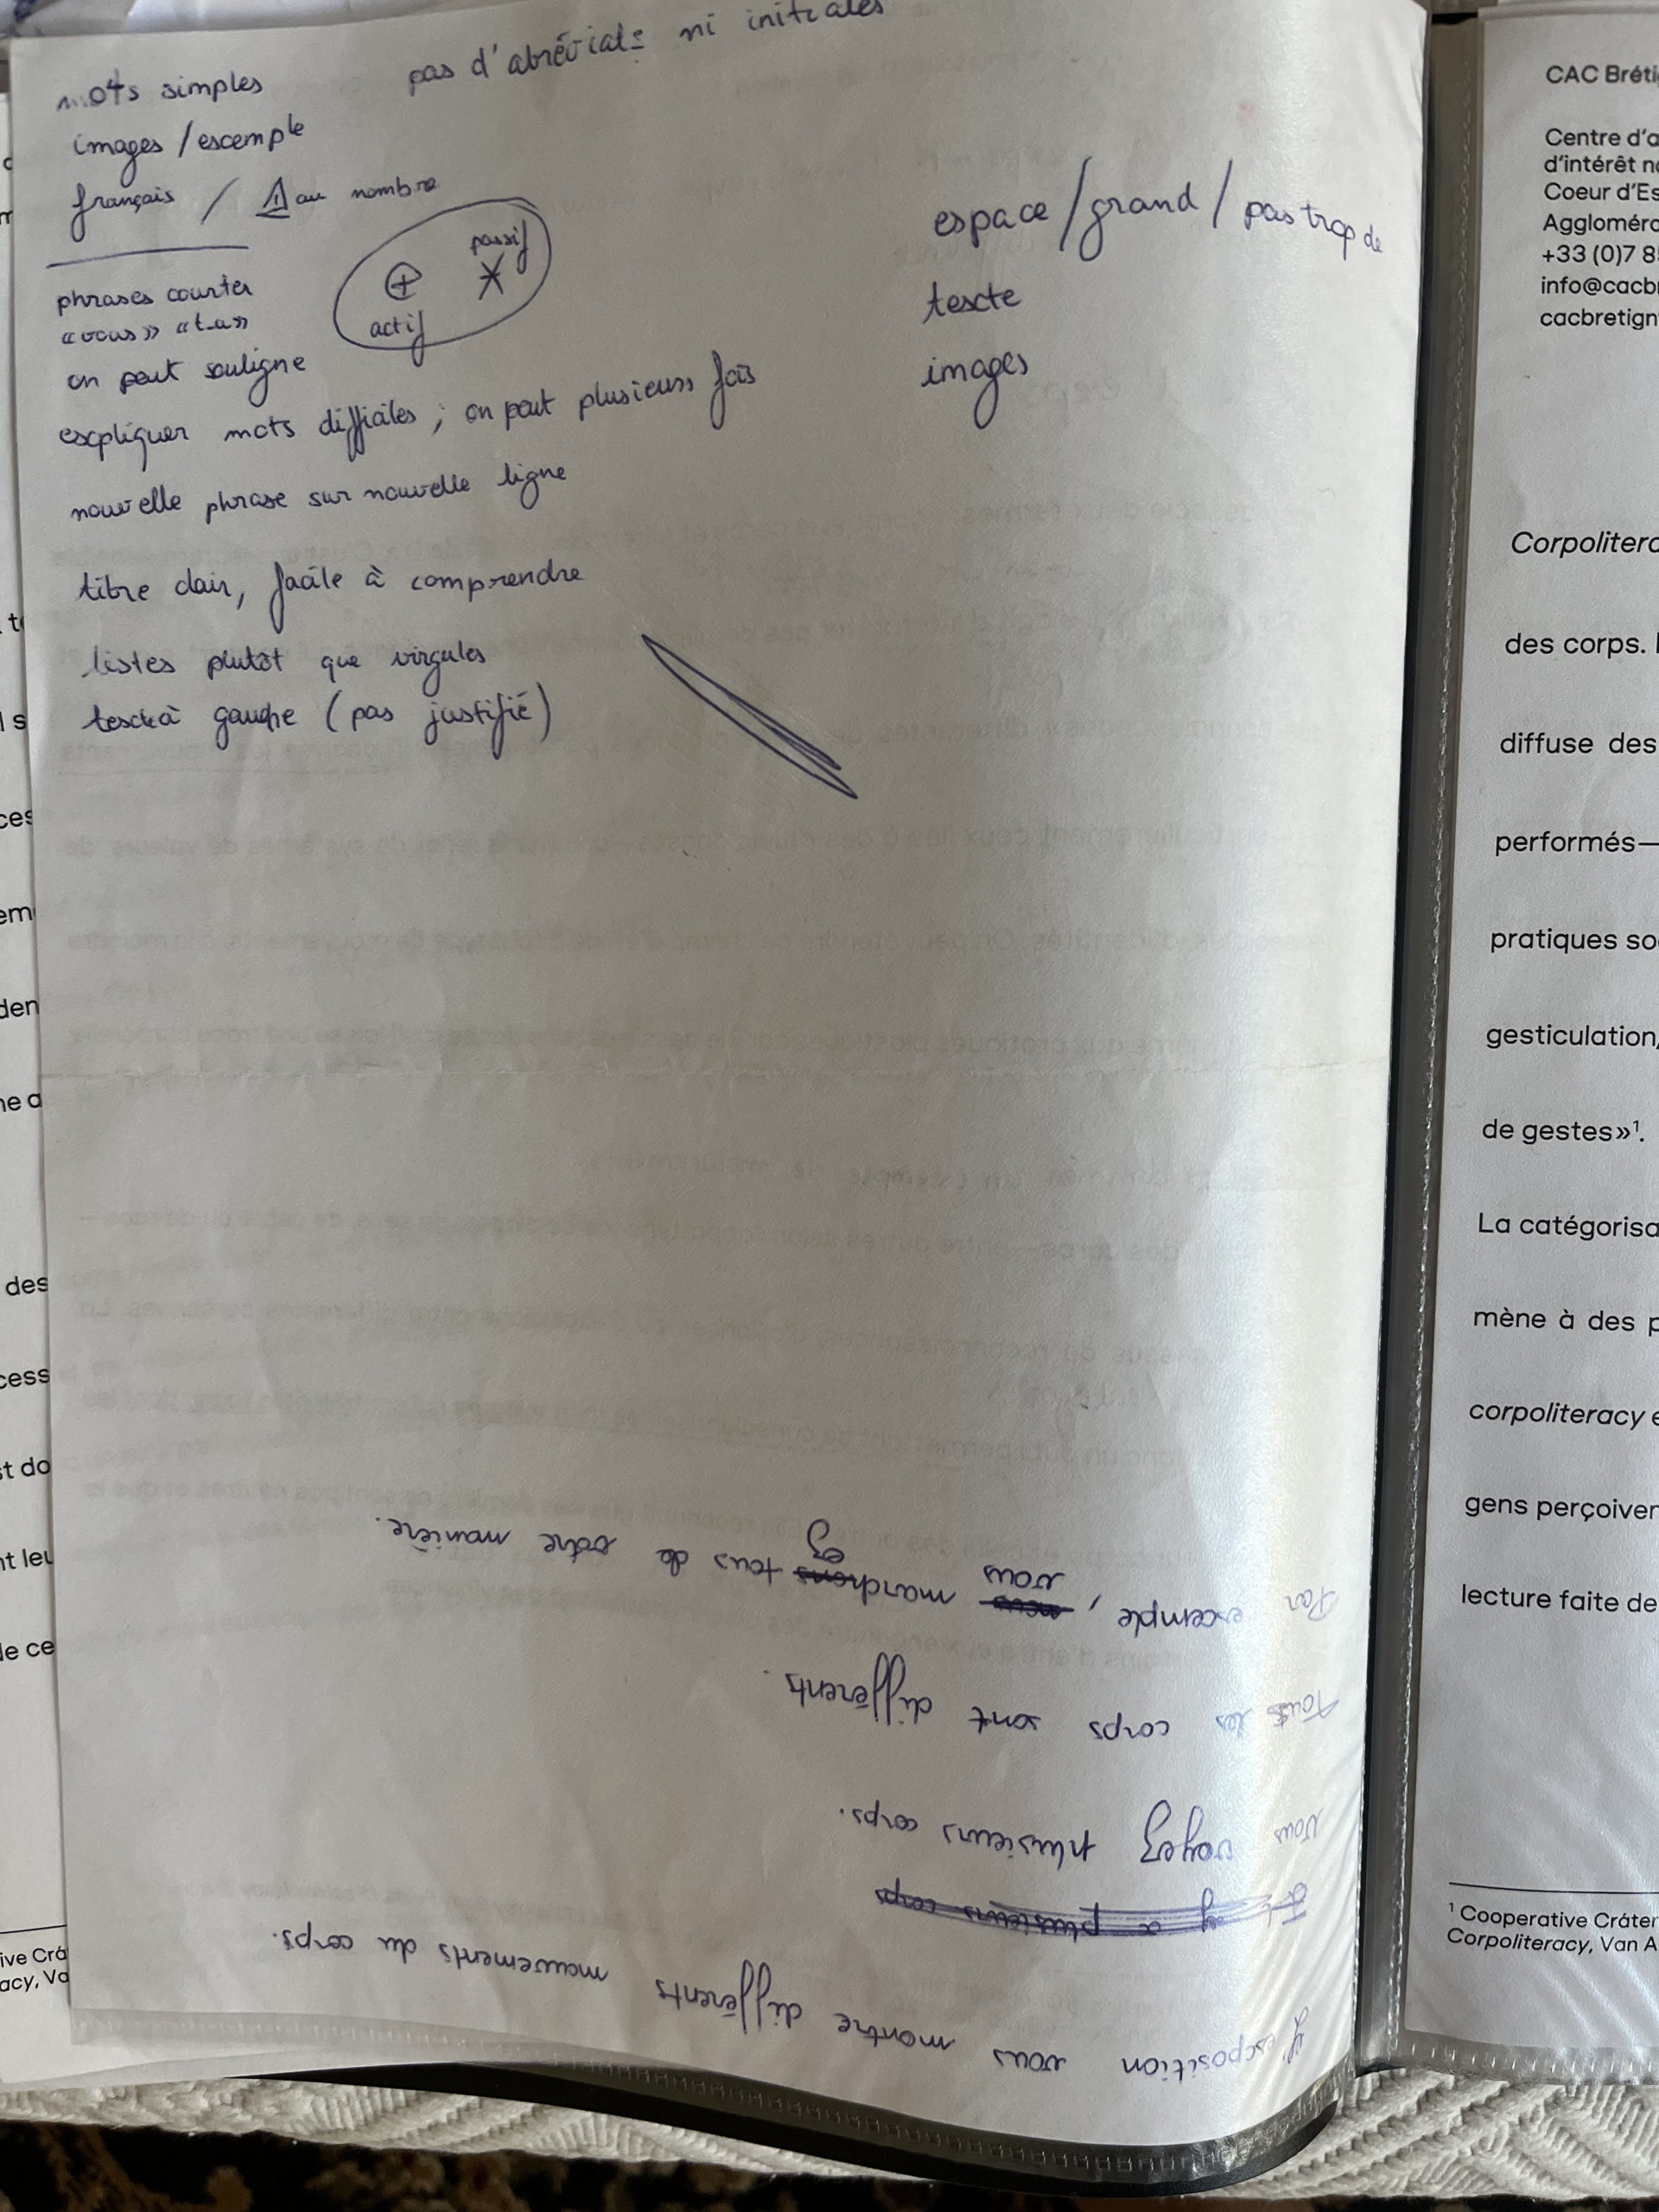 mots simples
pas d'abréviat° ni initiales
images / exemple
français / ⚠ au nombre
phrases courtes
« vous » « tu »
passif
actif
on peut souligne
expliquer mots difficiles ; on peut plusieurs fois
nouvelle phrase sur nouvelle ligne
titre clair, facile à comprendre
listes plutôt que virgules
texte à gauche (pas justifié)
espace / grand / pas trop de
texte
images
L'exposition vous montre différents mouvements du corps.
Il y a plusieurs corps
vous voyez plusieurs corps.
Tous les corps sont différents.
Par exemple, nous vous marchons ez tous de votre manière.
CAC Bréti
Centre d'a
d'intérêt n
Coeur d'Es
Aggloméra
+33 (0)7 8
info@cacb
cacbretign
Corpolitera
des corps.
diffuse des
performés—
pratiques so
gesticulation,
de gestes»¹.
La catégorisa
mène à des p
corpoliteracy e
gens perçoiven
lecture faite de
¹ Cooperative Cráter
Corpoliteracy, Van A
ces
den
ne a
des
cess
st do
nt leu
de ce
ive Crá
acy, Va